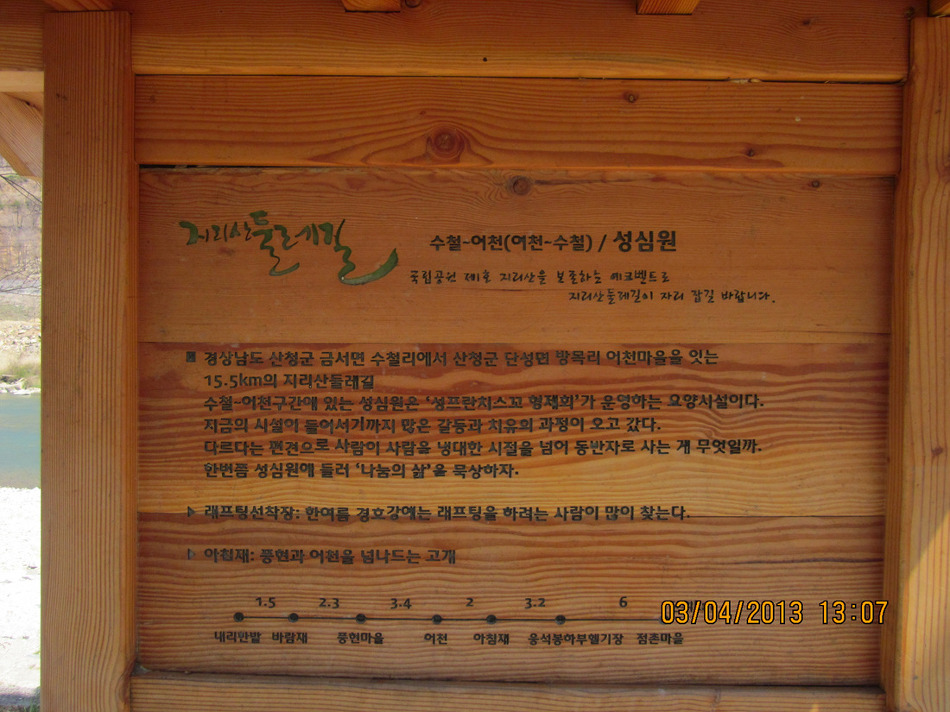 지리산둘레길
수철~어천(어천~수철) / 성심원
국립공원 제1호 지리산을 보존하는 에코벨트로
지리산둘레길이 자리 잡길 바랍니다.
경상남도 산청군 금서면 수철리에서 산청군 단성면 방목리 어천마을을 잇는
15.5km의 지리산둘레길
수철-어천구간에 있는 성심원은 ‘성프란치스꼬 형제회’가 운영하는 요양시설이다.
지금의 시설이 들어서기까지 많은 갈등과 치유의 과정이 오고 갔다.
다르다는 편견으로 사람이 사람을 냉대한 시절을 넘어 동반자로 사는 게 무엇일까.
한번쯤 성심원에 들러 ‘나눔의 삶’을 묵상하자.
▷ 래프팅선착장: 한여름 경호강에는 래프팅을 하려는 사람이 많이 찾는다.
▷ 아침재: 풍현과 어천을 넘나드는 고개
1.5 2.3 3.4 2 3.2 6
내리한밭 바람재 풍현마을 어천 아침재 웅석봉하부헬기장 점촌마을
03/04/2013 13:07